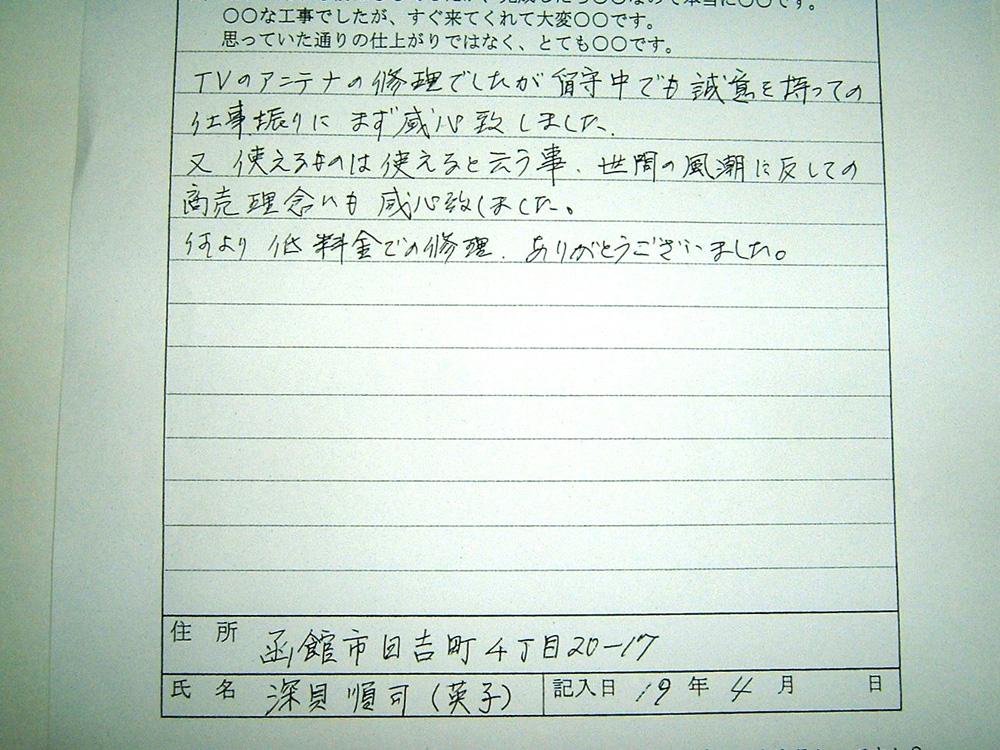 〇〇な工事でしたが、すぐ来てくれて大変〇〇です。
思っていた通りの仕上がりではなく、とても〇〇です。
TVのアンテナの修理でしたが留守中でも誠意を持っての
仕事振りにまず感心致しました.
又使えるものは使えると云う事、世間の風潮に反しての
商売理念にも感心致しました。
何より低料金での修理、ありがとうございました。
住所 函館市日吉町4丁目20-17
氏名 深貝順司(英子) 記入日 19年4月 日